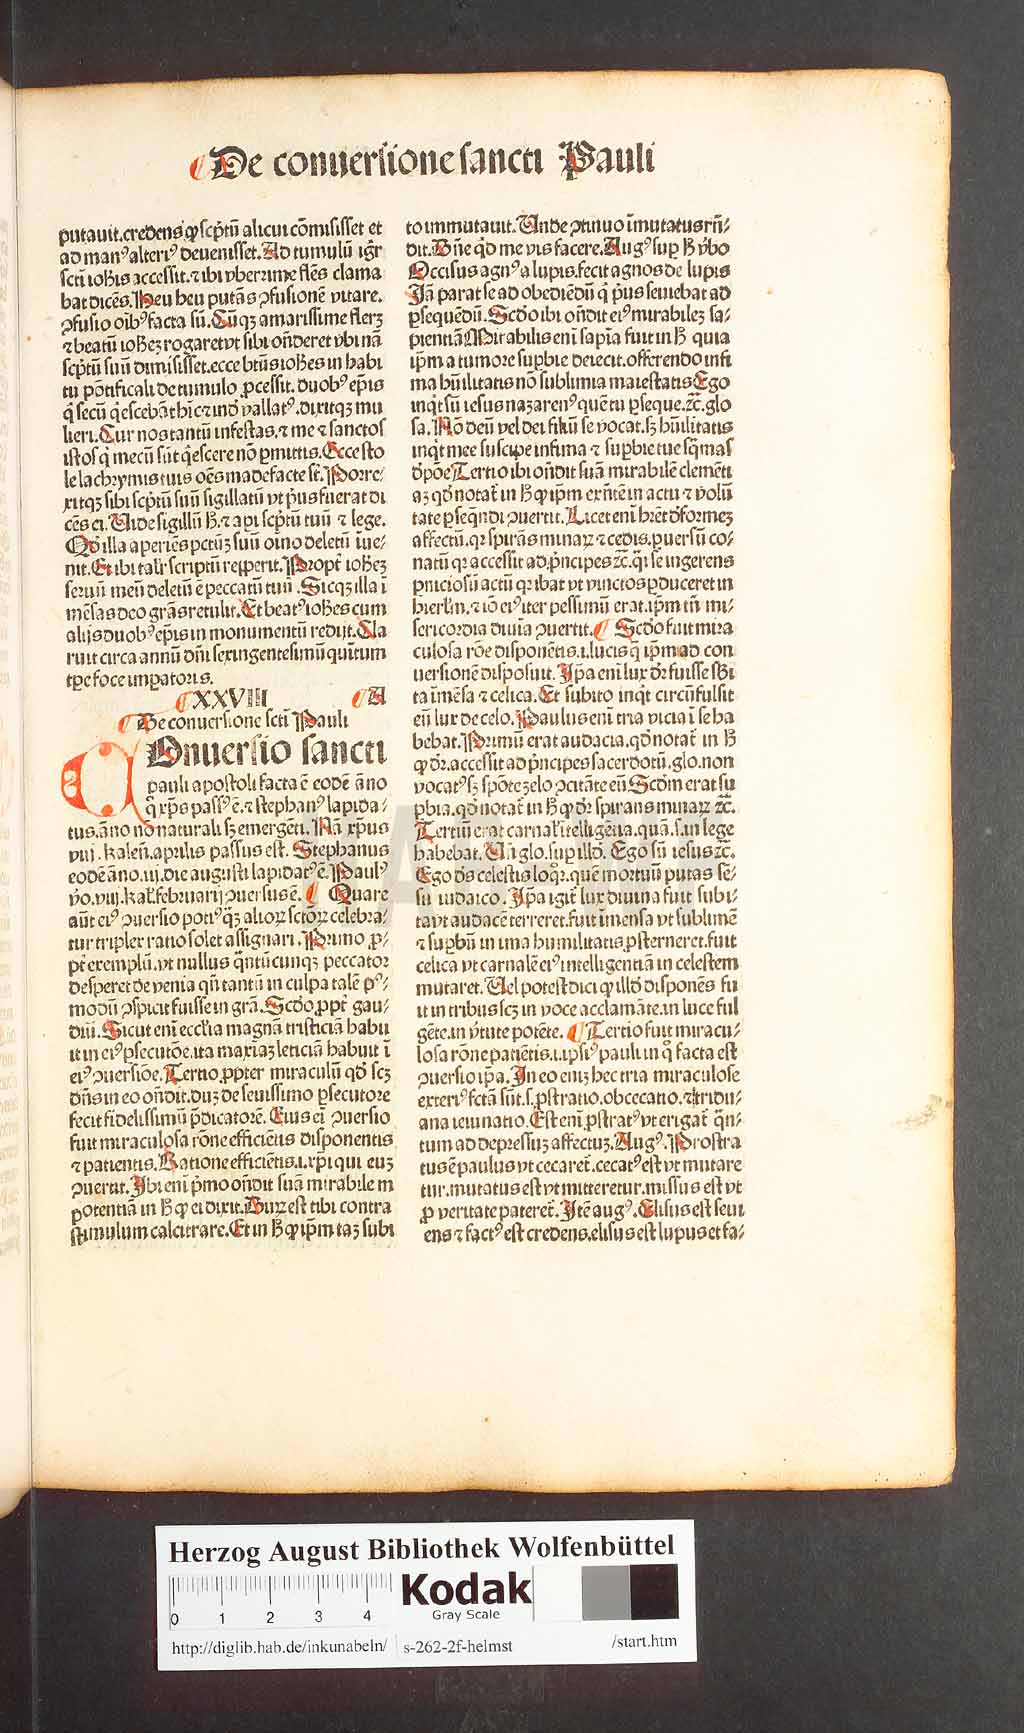 De conuersione sancti Pauli
putauit. credens ꝙ scptū alicui cōmisisset et
ad manꝰ alteriꝰ deuenisset. Ad tumulū igr̄
scti ioh̄is accessit. ⁊ ibi vberrime flēs clama
bat dicēs. Heu heu putās ↄfusionē vitare.
ↄfusio oibꝰ facta sū. Cūqꝫ amarissime flerꝫ
⁊ beatū ioh̄eꝫ rogaret vt sibi on̄deret vbi nā
scptū suū dimisisset. ecce btūs ioh̄es in habi
tu pōtificali de tumulo ꝓcessit. duobꝰ ep̄is
q̄ secū q̄escebāt hīc ⁊ inð vallatꝰ. dixitqꝫ mu
lieri. Cur nos tantū infestas. ⁊ me ⁊ sanctos
istos q̄ mecū sūt q̄escere nō ꝑmittis. Ecce sto
le lachrymis tuis oēs madefacte sr̄. Porre⸗
xitqꝫ sibi scptū suū sigillatū vt p̄us fuerat di
cēs ei. Vide sigillū ꝧ. ⁊ api scptū tuū ⁊ lege.
Qð illa aperiēs pctūꝫ suū oīno deletū īue⸗
nit. Et ibi talr̄ scriptū reꝑperit. Propt̄ ioh̄eꝫ
seruū meū deletū ē peccatū tuū. Sicqꝫ illa ī
mēsas deo grās retulit. Et beatꝰ ioh̄es cum
alijs duobꝰ ep̄is in monumentū redijt. Cla
ruit circa annū dn̄i sexingentesimū quītum
tꝑe foce imꝑatoris.
XXVIII A
De conuersione scti Pauli
COnuersio sancti
pauli apostoli facta ē eodē āno
q̊ xp̄s passꝰ ē. ⁊ stephanꝰ lapida⸗
tus. āno nō naturali sꝫ emergēti. Nā xp̄us
viij. kaleñ. aprilis passus est. Stephanus
eodē āno. iij. die augusti lapidatꝰ ē. Paulꝰ
v̊o. viij. kal̄. februarij ↄuersus ē. Quare
aūt eiꝰ ↄuersio potiꝰ q̄ꝫ alioꝝ sctōꝝ celebra⸗
tur triplex ratio solet assignari. Primo ꝓ⸗
pt̄ exemplū. vt nullus q̄ntūcunqꝫ peccator
desperet de venia qn̄ tantū in culpa talē pꝰ⸗
modū ↄspicit fuisse in grā. Scdo ꝓpt̄ gau⸗
diū. Sicut eni eccl̄ia magnā tristiciā habu
it in eiꝰ ꝑsecutōe. ita maxīaꝫ leticiā habuit ī
eiꝰ ↄuersiōe. Tertio ꝓpter miraculū qð scꝫ
dn̄s in eo on̄dit. duꝫ de seuissimo ꝑsecutore
fecit fidelissimū p̄dicatorē. Eius ei ↄuersio
fuit miraculosa rōne efficiētis disponentis
⁊ patientis. Ratione efficiētis. i. xp̄i qui euꝫ
ↄuertit. Ibi eni p̄mo on̄dit suā mirabilem
potentiā in ꝧ ꝙ ei dixit. Duꝝ est tibi contra
stimulum calcitrare. Et in ꝧ ꝙ ip̄m taꝫ subi
to immutauit. Vnde ↄtinuo īmutatus rn̄⸗
dit. Dn̄e qð me vis facere. Augꝰ suꝑ ꝧ v̄bo
Occisus agnꝰ a lupis. fecit agnos de lupis
Iā parat se ad obediēdū q̄ p̄us seuiebat ad
ꝑsequēdū. Scdo ibi on̄dit eiꝰ mirabileꝫ sa⸗
pientiā Mirabilis eni sapīa fuit in ꝧ quia
ip̄m a tumore suꝑbie deiecit. offerendo infi
ma hūilitatis nō sublimia maiestatis Ego
inq̄t sū iesus nazarenꝰ quē tu ꝑseque. ⁊c̄. glo
sa. Nō deū vel dei filiū se vocat. sꝫ hūilitatis
inq̄t mee suscipe infima ⁊ suꝑbie tue sq̄mas
dꝑōe Tertio ibi on̄dit suā mirabilē clemēti
aꝫ qð notat̄ in ꝧ ꝙ ip̄m exn̄tē in actu ⁊ volū
tate ꝑseq̄ndi ↄuertit. Licet eni hr̄et ðformeꝫ
affectū. qꝛ spirās minaꝝ ⁊ cedis. ꝑuersū co⸗
natū qꝛ accessit ad p̄ncipes ⁊c̄. q̄si se ingerens
ꝑniciosū actū qꝛ ibat vt vinctos ꝑduceret in
hierl̄m. ⁊ iō eiꝰ iter pessimū erat. ip̄m tn̄ mi⸗
sericordia diuīa ↄuertit. Scdo fuit mira
culosa rōe disponētis. i. lucis q̄ ip̄m ad con
uersionē disposuit. Ip̄a eni lux dr̄ fuisse subi
ta īmēsa ⁊ celica. Et subito inq̄t circūfulsit
eū lux de celo. Paulus eni tria vicia ī se ha
bebat. Primū erat audacia. qð notat̄ in ꝧ
ꝙ dr̄. accessit ad p̄ncipes sacerdotū. glo. non
vocatꝰ sꝫ spōte ꝫelo ↄcitāte eū Scdm erat su
ꝑbia. qð notat̄ in ꝧ ꝙ dr̄ spirans minaꝝ ⁊c̄.
Tertiū erat carnal̄ itelligētia. quā. s. in lege
habebat. Vn̄ glo. suꝑ illð. Ego sū iesus ⁊c̄.
Ego ds̄ celestis loq̊r. quē mortuū putas sē⸗
su iudaico. Ip̄a igit̄ lux diuina fuit subi⸗
ta vt audacē terreret. fuit īmensa vt sublimē
⁊ suꝑbū in ima humilitatis ꝓsterneret. fuit
celica vt carnalē eiꝰ intelligentiā in celestem
mutaret. Vel potest dici ꝙ illð disponēs fu
it in tribus scꝫ in voce acclamāte. in luce ful
gēte. in v̄tute potēte. Tertio fuit miracu⸗
losa rōne patiētis. i. ipsiꝰ pauli in q̊ facta est
ↄuersio ip̄a. In eo eniꝫ hec tria miraculose
exteriꝰ fctā sūt. s. ꝓstratio. obcecatio. ⁊ tridu⸗
ana ieiunatio. Est eni ꝓstratꝰ vt erigat̄ q̄n⸗
tum ad depressuꝫ affectuꝫ. Augꝰ. Prostra
tus ē paulus vt cecaret̄. cecatꝰ est vt mutare
tur. mutatus est vt mitteretur. missus est vt
ꝓ veritate pateret̄. Itē augꝰ. Elisus est seui
ens ⁊ factꝰ est credens. elisus est lupus et fa⸗
Herzog August Bibliothek Wolfenbüttel
Kodak
Gray Scale
0 1 2 3 4
http://diglib.hab.de/inkunabeln/ s-262-2f-helmst /start.htm